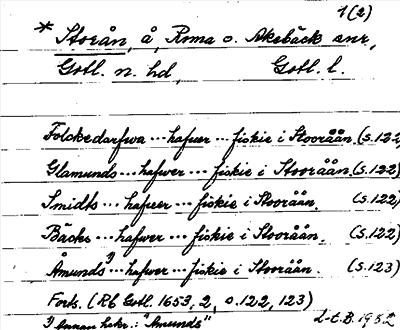 1(2)
* Storån, å, Roma o. Akebäck snr,
Gotl. n. hd, Gotl. l.
Folckedarfwa --- hafwer --- fiskie i Stooråån. (s.122)
Glamunds --- hafwer --- fiskie i Stooråån. (s.122)
Smidts --- hafwer --- fiskie i Stooråån. (s.122)
Bäcks --- hafwer --- fiskie i Stooråån. (s.122)
Åmunds 1) --- hafwer --- fiskie i Stooråån. (s.123)
Forts. (Rb Gotl. 1653, 2, s. 122, 123)
1) Annan hskr.: "Amunds" L-E.B. 1952